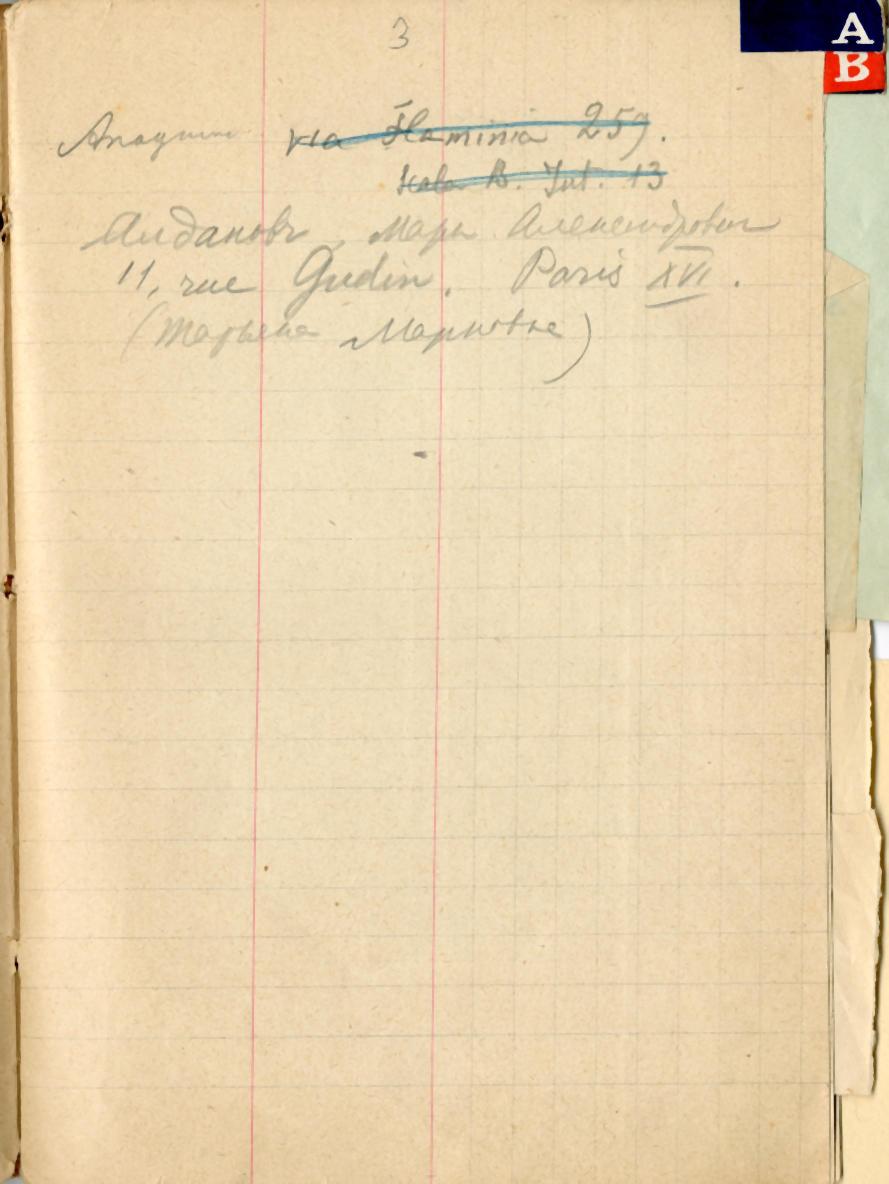 3
A
B
Анагнин via Flaminia 259.
scala B. Int. 13
Алдановъ, Маркъ Александрович
11, rue Gudin. Paris XVI.
(Татьяна Марковна)